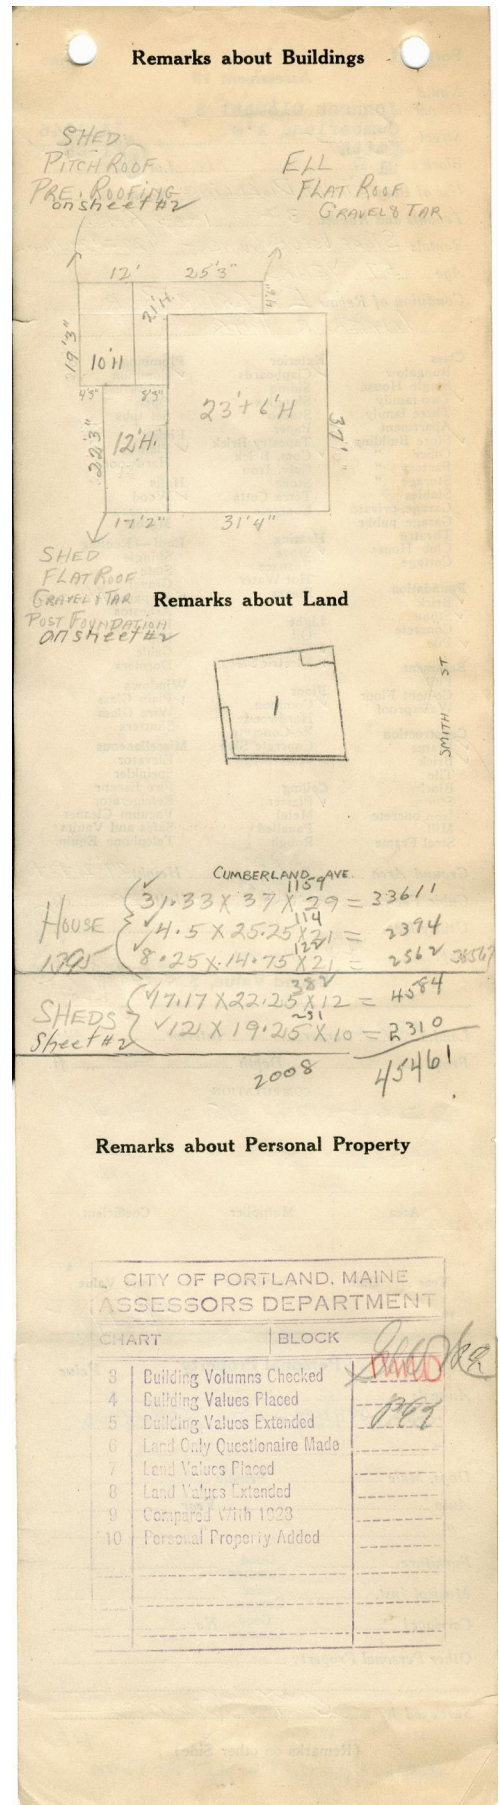 Remarks about Buildings
SHED
PITCH ROOF
PRE. ROOFING
on sheet #2
ELL
FLAT ROOF
GRAVEL & TAR
12' 25'3"
21'H.
19'3"
10'H
4'5" 8'3"
23'+6'H
37'
22'3"
12'H.
17'2" 31'4"
SHED
FLAT ROOF
GRAVEL & TAR
POST FOUNDATION
on sheet #2
Remarks about Land
1
SMITH ST.
CUMBERLAND AVE.
1159
31.33 X 37 X 29 = 33611
HOUSE
114
4.5 X 25.25 X 21 = 2394
1395
122
8.25 X 14.75 X 21 = 2562 38567
382
17.17 X 22.25 X 12 = 4584
SHEDS
231
12 X 19.25 X 10 = 2310
Sheet #2
2008 45461
Remarks about Personal Property
CITY OF PORTLAND, MAINE
ASSESSORS DEPARTMENT
CHART BLOCK
3 Building Volumns Checked
4 Building Values Placed
5 Building Values Extended
6 Land Only Questionaire Made
7 Land Values Placed
8 Land Values Extended
9 Compared With 1923
10 Personal Property Added